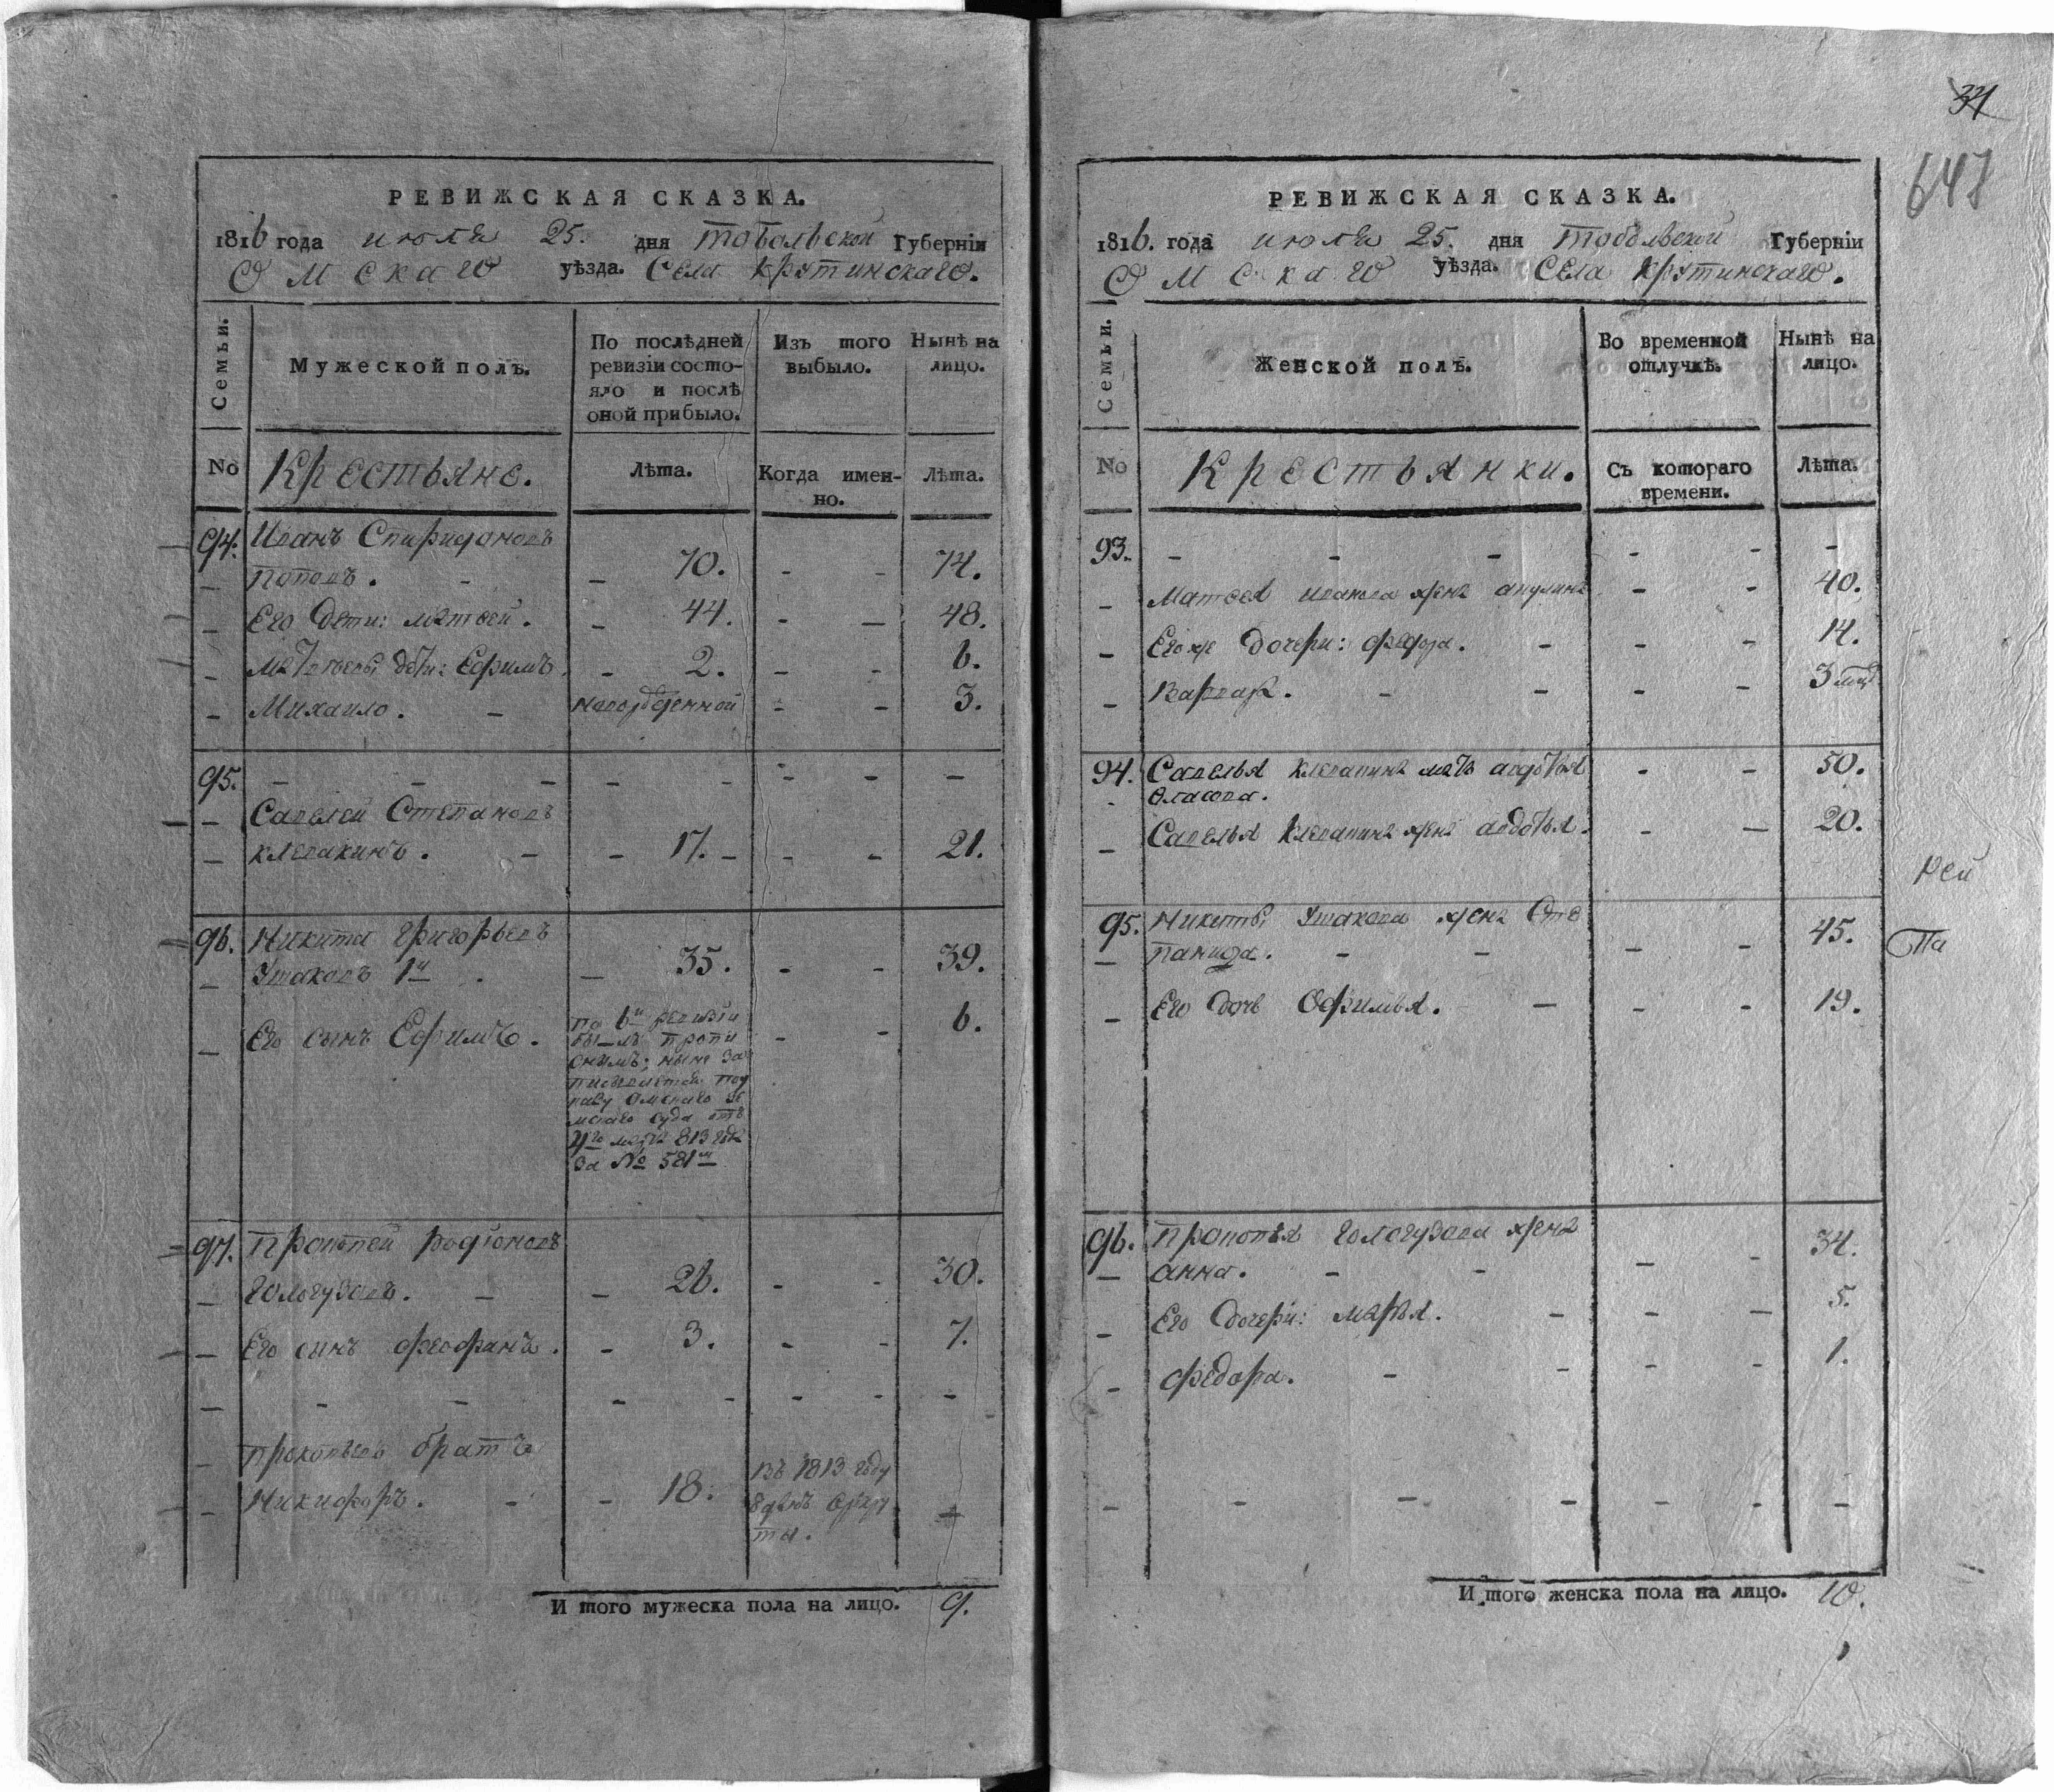 РЕВИЖСКАЯ СКАЗКА.
1816 года июля 25. дня тобольской Губерніи
Омскаго уѣзда. Села Крутинскаго.
Семьи.
Мужеской полъ.
По послѣдней
ревизіи состо-
яло и послѣ
оной прибыло.
Изъ того
выбыло.
Нынѣ на
лицо.
No
Крестьяне.
Лѣта.
Когда имен-
но.
Лѣта.
94. Иванъ Спиридоновъ
Поповъ. - - 70. - - 74.
Его дети: матвей. - 44. - - 48.
Матвѣевы дѣти: Ефимъ - 2. - - 6.
Михаило. - новорожденной - - 3.
95. - - - - - - - -
Савелей Степановъ
клевакинъ. - - 17. - - - 21.
96. Никита григорьевъ
Ушаковъ 1й - 35. - - 39.
Его сынъ Ефимъ. - - 6.
по 6й ревизіи
былъ пропи
снымъ; ныне за
писывается по
Омскаго зе
мскаго суда отъ
4го марта 813 года
за № 581м
97. Прокопей родіоновъ
Гологузовъ. - - 26. - - 30.
Его сынъ феофанъ. - 3. - - 7.
- - - - - - - -
Прокопьевъ братъ
Никифоръ. - - 18.
въ 1813 году
въ
ты.
И того мужеска пола на лицо. 9.
34
647
РЕВИЖСКАЯ СКАЗКА.
1816. года июля 25. дня тобольской Губерніи
Омскаго уѣзда. Села Крутинскаго.
Семьи.
Женской полъ.
Во временной
отлучкѣ.
Нынѣ на
лицо.
No
Крестьянки.
Съ котораго
времени.
Лѣта.
93. - - - - - -
Матвея иванова жена акулина - - 40.
Его же дочери: федора. - - - 14.
Варвара. - - - - 3 мца
94. Савелья клевакина мать авдотья - - 50.
Власова.
Савелья клевакина жена авдотья. - - 20.
рей
95. Никиты Ушакова жена Сте
панида. - - - - 45.
Па
Его дочь Офимья. - - - 19.
96. Прокопья гологузова жена
анна. - - - - 34.
Его дочери: марья. - - - 5.
федора. - - - - 1.
- - - - - - -
И того женска пола на лицо. 10.